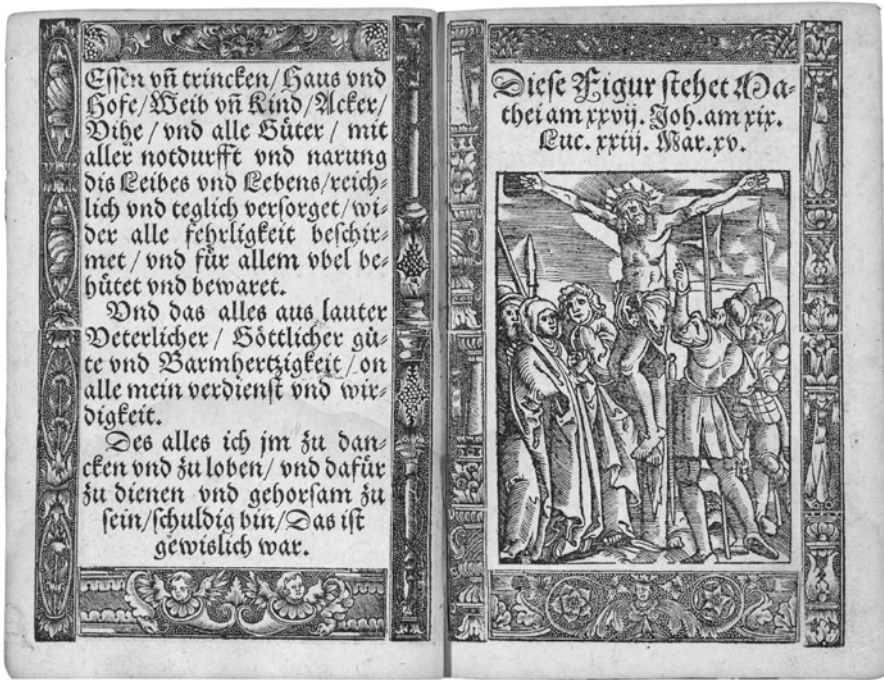 Essen vñ trincken/Haus vnd
Hofe/Weib vñ Kind/Acker/
Vihe/vnd alle Güter/mit
aller notdurfft vnd narung
dis Leibes vnd Lebens/reich-
lich vnd teglich versorget/wi-
der alle fehrligkeit beschir-
met/vnd für allem vbel be-
hütet vnd bewaret.
Vnd das alles aus lauter
Veterlicher/Göttlicher gü-
te vnd Barmhertzigkeit/on
alle mein verdienst vnd wir-
digkeit.
Des alles ich jm zu dan-
cken vnd zu loben/vnd dafür
zu dienen vnd gehorsam zu
sein/schuldig bin/Das ist
gewislich war.
Diese Figur stehet Ma-
thei am xxvij. Joh. am xix.
Luc. xxiij. Mar. xv.